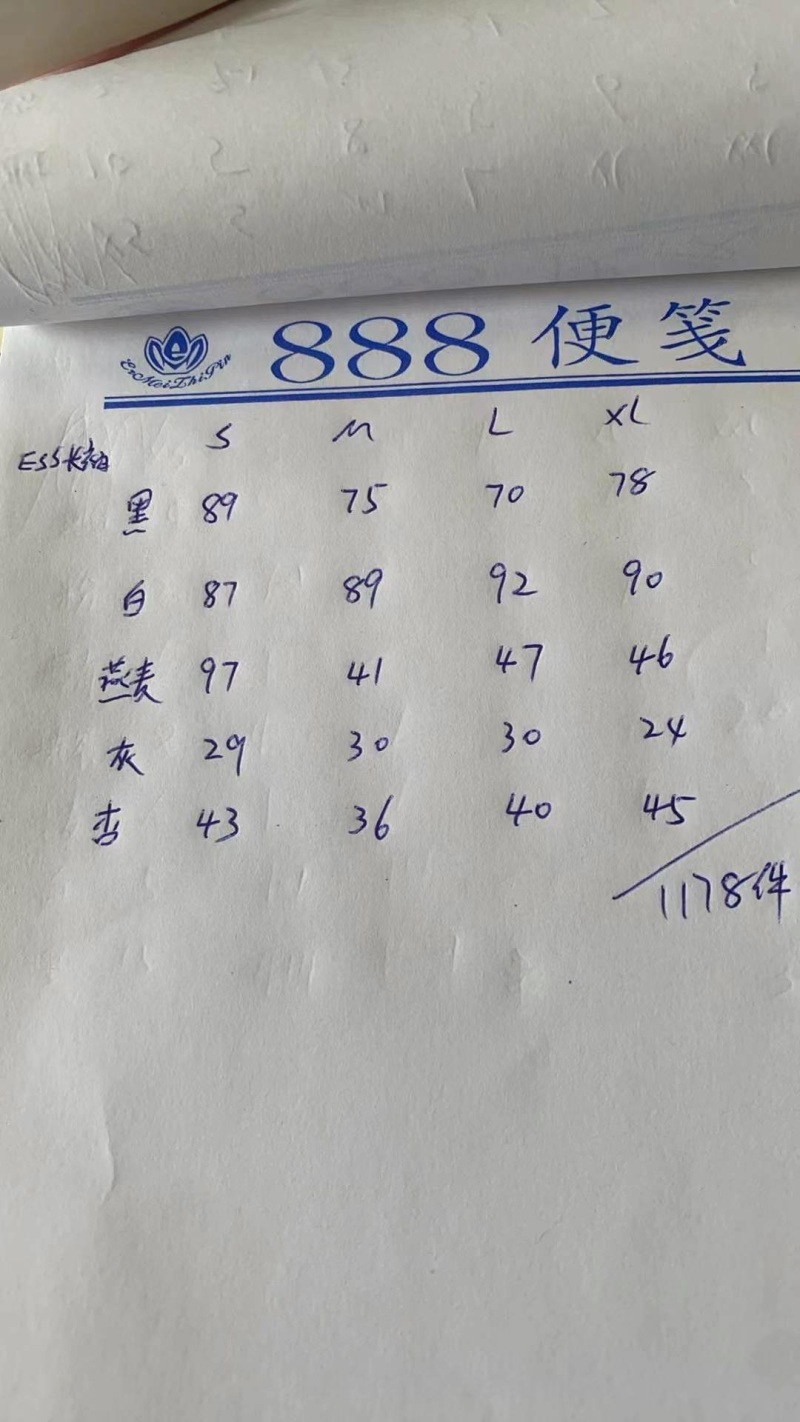 ErMeiZhiPin
888 便笺
S M L XL
ESS长袖
黑 89 75 70 78
白 87 89 92 90
燕麦 97 41 47 46
灰 29 30 30 24
杏 43 36 40 45
1178件